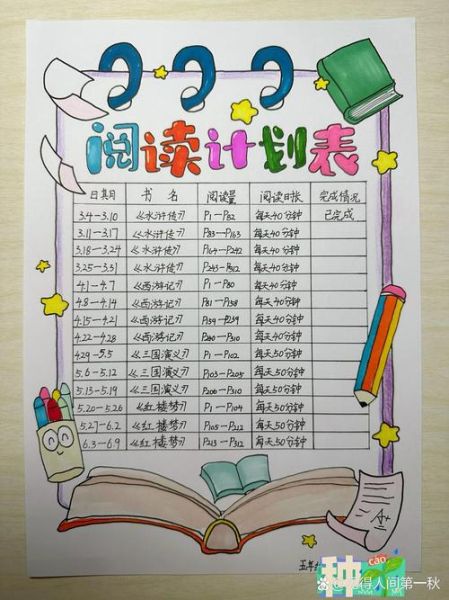 阅读计划表
日期 书名 阅读量 阅读时长 完成情况
3.4—3.10 《水浒传》 P1—P82 每天40分钟 已完成
3.11—3.17 《水浒传》 P83—P163 每天40分钟
3.18—3.24 《水浒传》 P164—P242 每天40分钟
3.25—3.31 《水浒传》 P243—P312 每天40分钟
4.1—4.7 《西游记》 P1—P80 每天40分钟
4.8—4.14 《西游记》 P81—P158 每天40分钟
4.15—4.21 《西游记》 P159—P239 每天40分钟
4.22—4.28 《西游记》 P240—P310 每天40分钟
4.29—5.5 《三国演义》 P1—P102 每天50分钟
5.6—5.12 《三国演义》 P103—P205 每天50分钟
5.13—5.19 《三国演义》 P206—P310 每天50分钟
5.20—5.26 《红楼梦》 P1—P104 每天50分钟
5.27—6.2 《红楼梦》 P105—P212 每天50分钟
6.3—6.9 《红楼梦》 P213—P312 每天50分钟
A+
五年
种
cǎo
得人间第一秋